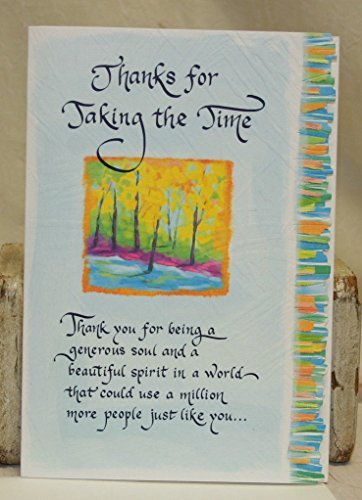 Thanks for
Taking the Time
Thank you for being a
generous soul and a
beautiful spirit in a world
that could use a million
more people just like you...